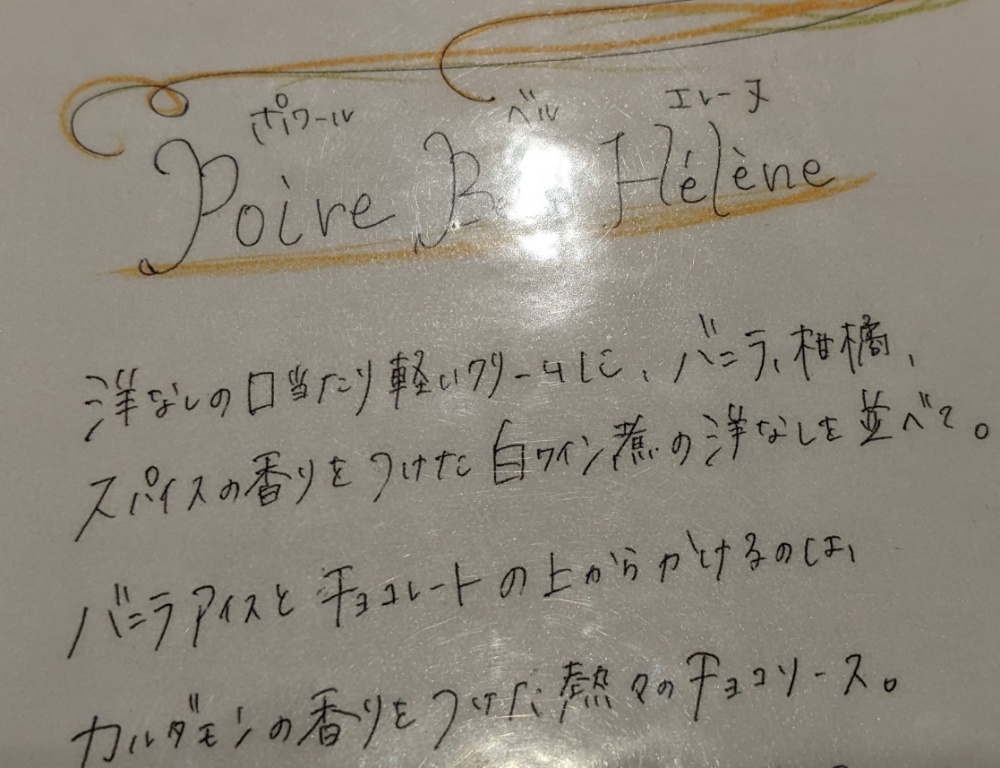 ポワール ベル エレーヌ
Poire Belle Hélène
洋なしの口当たり軽いクリームに、バニラ、柑橘、
スパイスの香りをつけた白ワイン煮の洋なしを並べて。
バニラアイスとチョコレートの上からかけるのは、
カルダモンの香りをつけた熱々のチョコソース。